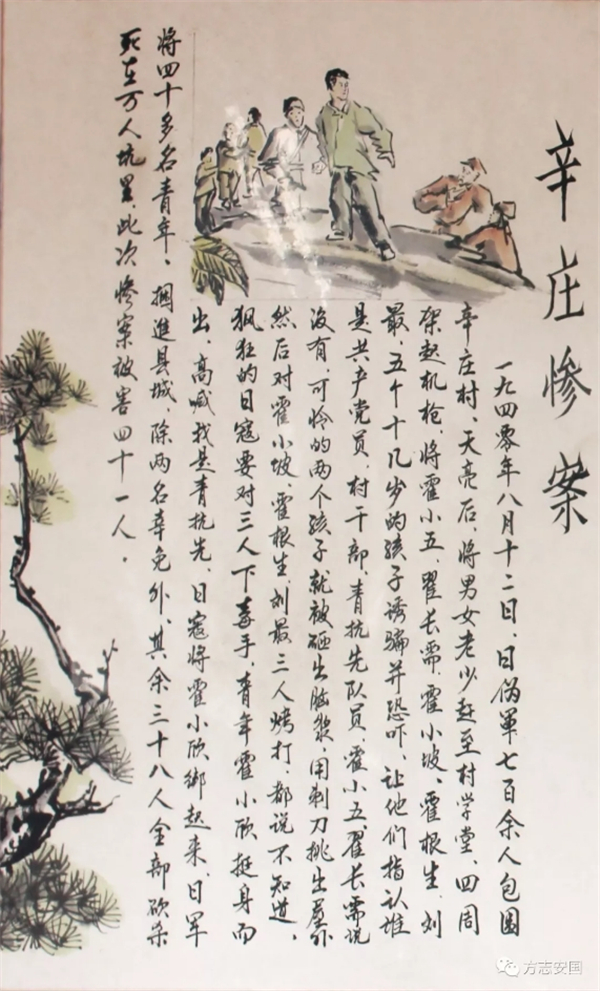 辛庄惨案
一九四零年八月十二日，日伪军七百余人包围
辛庄村、天亮后，将男女老少赶至村学堂、四周
架起机枪，将霍小五、翟长需、霍小坡、霍根生、刘
最，五个十几岁的孩子诱骗并恐吓，让他们指认谁
是共产党员，村干部，青抗先队员，霍小五、翟长需说
没有，可怜的两个孩子就被砸出脑浆，用刺刀挑出屋外
然后对霍小坡、霍根生、刘最三人烤打，都说不知道，
疯狂的日寇要对三人下毒手，青年霍小欣挺身而
出，高喊我是青抗先，日寇将霍小欣绑起来，日军
将四十多名青年，捆進县城，除两名幸免外，其余三十八人全部砍杀
死在万人坑里，此次惨案被害四十一人。
方志安国